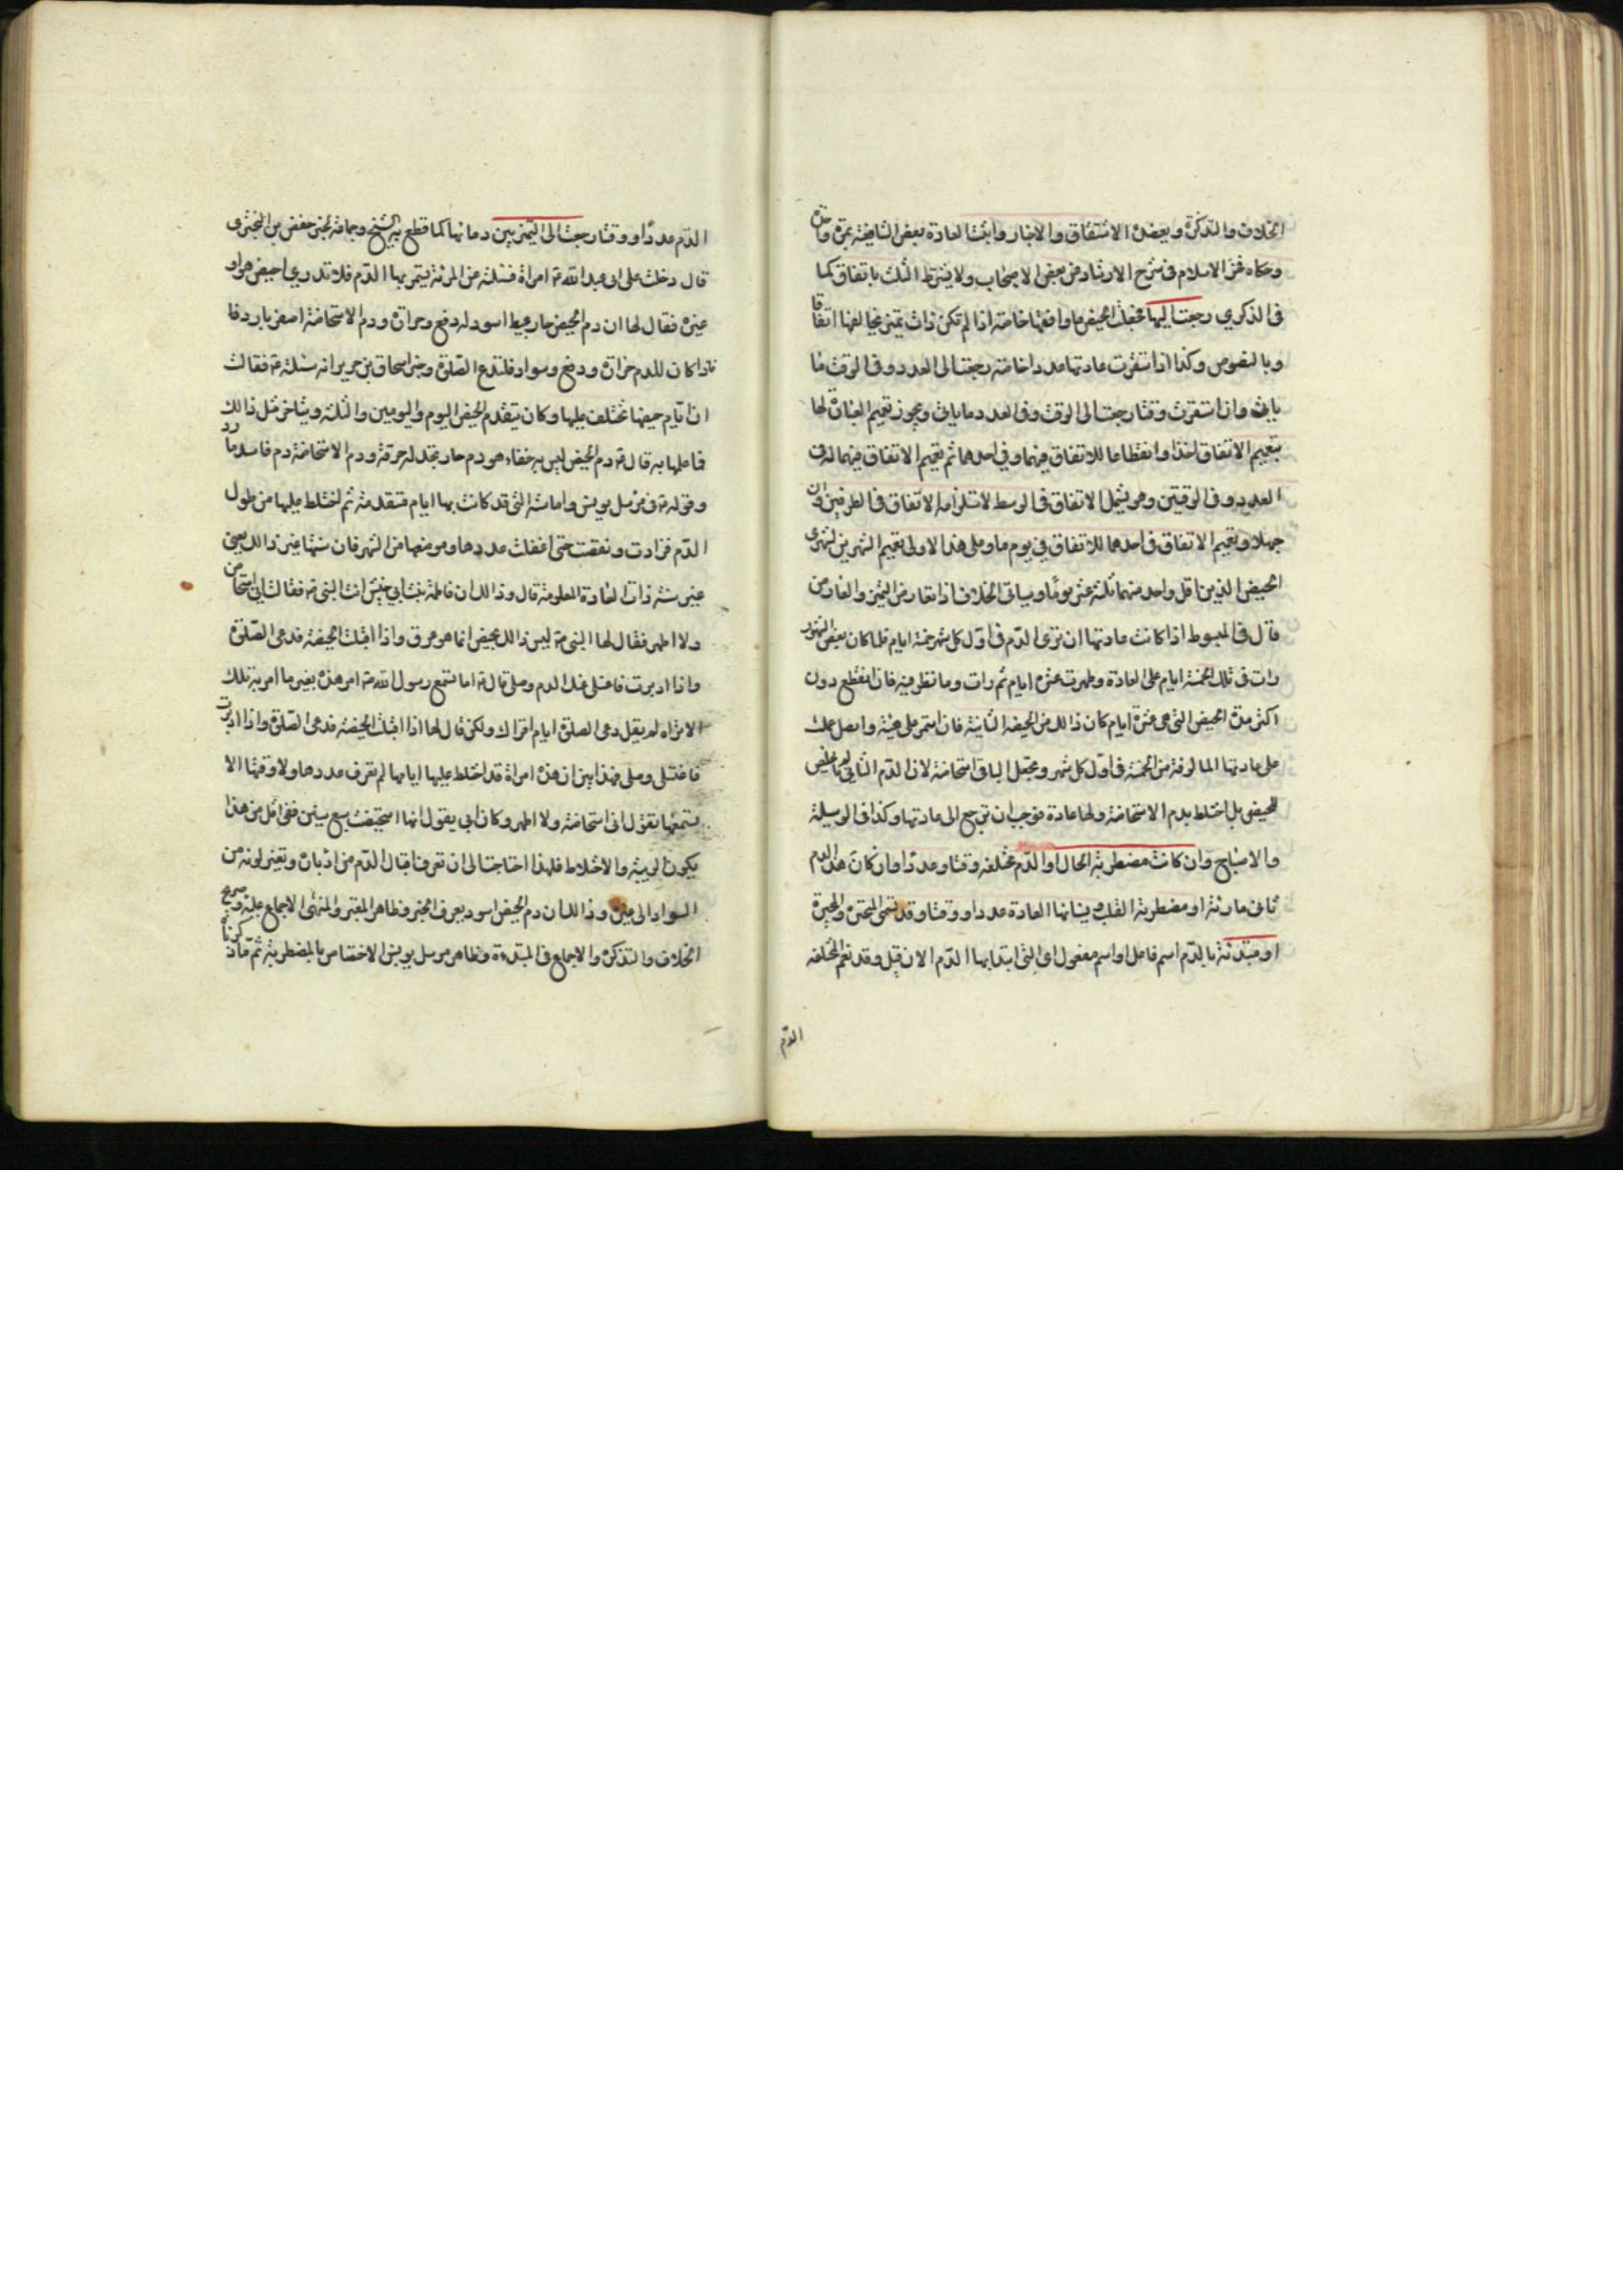 الخلاف والتذكرة ويعضده الاشتقاق والاخبار واثبت العادة بعض الشافعية بمرة واحدة
وحكاه فخر الاسلام في شرح الارشاد عن بعض الاصحاب ولا يشترط الثلث باتفاق كما
في الذكرى رجعت اليها فجعلت الحيض ما وافقها خاصة اذا لم تكن ذات تميز يخالفها اتفاقا
وبالنصوص وكذا اذا استقرت عادتها عددا خاصة رجعت الى العدد وفي الوقت ما
ياتي وان استقرت وقتا رجعت الى الوقت وفي العدد ما ياتي ويجوز تعميم العبارة لها
بتعميم الاتفاق لفظا وانقطاعا للاتفاق فيهما وفي احدهما ثم تعميم الاتفاق فيهما له في
العدد وفي الوقتين وهو يشمل الاتفاق في الوسط لاستلزامه الاتفاق في الطرفين وان
جهلا وتعميم الاتفاق في احدهما للاتفاق في يوم ما وعلى هذا الاولى تعميم الشهرين لشهرى
الحيض الذين اقل واحد منهما ثلثة عشر يوما وسياتي الخلاف اذا تعارض التميز والعادة من
قال في المبسوط اذا كانت عادتها ان ترى الدم في اول كل شهر خمسة ايام فلما كان بعض الشهور
رات في تلك الخمسة ايام على العادة وطهرت عشرة ايام ثم رات دما نظر فيه فان انقطع دون
اكثر مدة الحيض التي هي عشرة ايام كان ذالك من الحيضة الثانية فان استمر على هيئة واتصل عملت
على عادتها المالوفة من الخمسة في اول كل شهر وتجعل الباقي استحاضة لان الدم الثاني لم يخلص
للحيض بل اختلط بدم الاستحاضة ولها عادة فوجب ان ترجع الى عادتها وكذا في الوسيلة
والاصباح وان كانت مضطربة الحال او الدم مختلفة وقتا وعددا وان كان هذا الدم
ثاني ما رئته او مضطربة القلب بنسيانها العادة عددا ووقتا وقد تسمى المتحيرة والمحيرة
او مبتدئة بالدم اسم فاعل او اسم مفعول اى التي ابتدا بها الدم الان قبل وقد تعم المختلفة
الدم
الدم عددا ووقتا رجعت الى التميز بين دمائها كما قطع به الشيخ وجماعة لخبر حفص بن البختري
قال دخلت على ابي عبد الله ع امراة فسئلته عن المرئة يستمر بها الدم فلا تدري احيض هو او
غيره فقال لها ان دم الحيض حار عبيط اسود له دفع وحرارة ودم الاستحاضة اصفر بارد فا
فاذا كان للدم حرارة ودفع وسواد فلتدع الصلوة وخبر اسحاق بن جرير انه سئلته ع فقالت
ان ايام حيضها تختلف عليها وكان يتقدم الحيض اليوم واليومين والثلثة ويتاخر مثل ذالك
فما علمها به قال ع دم الحيض ليس به خفاء هو دم حار تجد له حرقة ودم الاستحاضة دم فاسد بارد
وقوله ع في مرسل يونس واما سنة التي قد كانت بها ايام متقدمة ثم اختلط عليها من طول
الدم فزادت ونقصت حتى اغفلت عددها وموضعها من الشهر فان سنتها غير ذالك يعني
غير سنة ذات العادة المعلومة قال وذالك ان فاطمة بنت ابي حبيش اتت النبي ص فقالت اني استحاض
ولا اطهر فقال لها النبي ص ليس ذالك بحيض انما هو عرق واذا اقبلت الحيضة فدعي الصلوة
واذا ادبرت فاغسلي عنك الدم وصلي قال ع اما تسمع رسول الله ص امر هذه بغير ما امر به تلك
الا تراه لم يقل دعي الصلوة ايام اقرائك ولكن قال لها اذا اقبلت الحيضة فدعي الصلوة واذا ادبرت
فاغتسلي وصلي فهذا يبين ان هذه امراة قد اختلط عليها ايامها لم تعرف عددها ولا وقتها الا
تسمعها تقول اني استحاض ولا اطهر وكان ابي يقول انها استحيضت سبع سنين ففي اقل من هذا
يكون الريبة والاختلاط فلهذا احتاجت الى ان تعرف اقبال الدم من ادباره وتغير لونه من
السواد الى غيره وذالك ان دم الحيض اسود يعرف الخبر وظاهر المعتبر والمنتهى الاجماع عليه وصريح
الخلاف والتذكرة والاجماع في المبتدءة وظاهر مرسل يونس الاختصاص بالمضطربة ثم